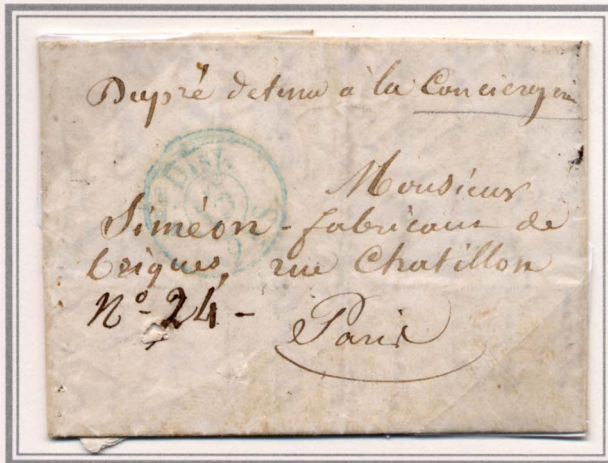 Dupré detenu à la Conciergerie
Monsieur
Siméon - fabricant de
briques, rue Chatillon
N° 24 -
Paris